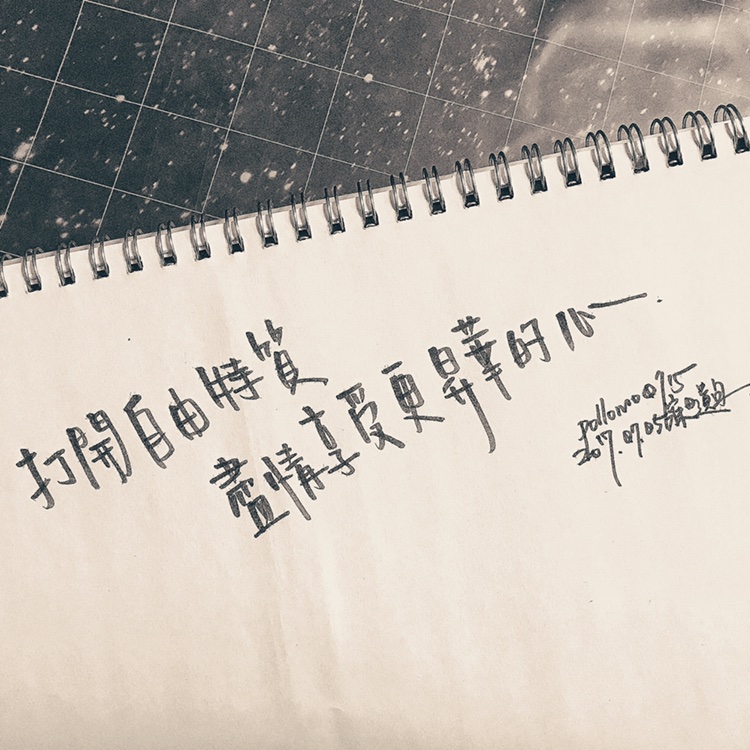 打開自由特質
盡情享受更昇華的心
pollomo@915
2017.07.05